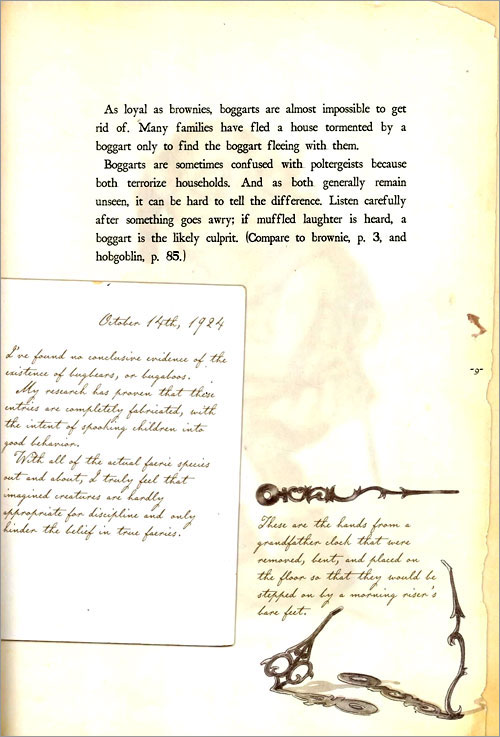 As loyal as brownies, boggarts are almost impossible to get
rid of. Many families have fled a house tormented by a
boggart only to find the boggart fleeing with them.
Boggarts are sometimes confused with poltergeists because
both terrorize households. And as both generally remain
unseen, it can be hard to tell the difference. Listen carefully
after something goes awry; if muffled laughter is heard, a
boggart is the likely culprit. (Compare to brownie, p. 3, and
hobgoblin, p. 85.)
October 14th, 1924
I've found no conclusive evidence of the
existence of bugbears, or bugaboos.
My research has proven that these
entries are completely fabricated, with
the intent of spooking children into
good behavior.
With all of the actual faerie species
out and about, I truly feel that
imagined creatures are hardly
appropriate for discipline and only
hinder the belief in true faeries.
-9-
These are the hands from a
grandfather clock that were
removed, bent, and placed on
the floor so that they would be
stepped on by a morning riser's
bare feet.